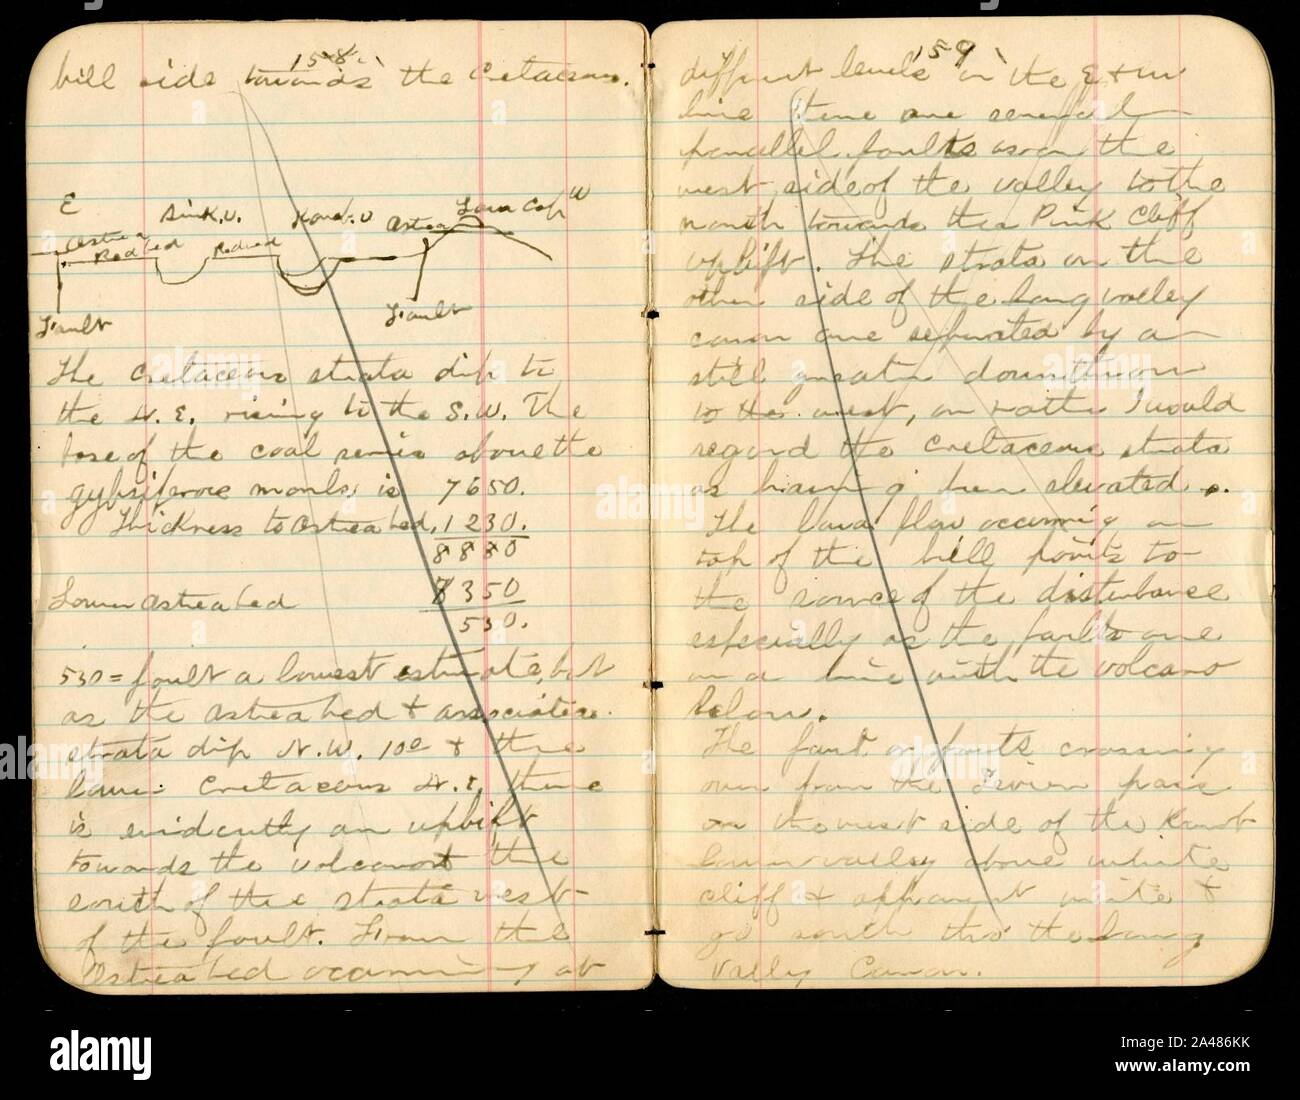 158.
hill side towards the Cretaceous.
E
Sink.V.
Kanab.V
Lava Cap W
Astrea
Red bed
Redbed
Astrea
Fault
Fault
The Cretaceous strata dip to
the N.E. rising to the S.W. The
base of the coal series above the
gypsiferous marls is 7650.
Thickness to Astrea bed, 1230.
8880
Lower Astrea bed 8350
530.
530 = fault a lowest estimate, but
as the Astrea bed & associate
strata dip N.W. 10° & the
lower Cretaceous N.E. there
is evidently an uplift
towards the volcano to the
south of the strata west
of the fault. From the
Astrea bed occurring at
159
different levels on the E & W
line there are several
parallel faults as on the
west side of the valley to the
north towards the Pink Cliff
uplift. The strata on the
other side of the Long valley
canon are separated by a
still greater downthrow
to the west, or rather I would
regard the Cretaceous strata
as having been elevated.
The lava flow occurring on
top of the hill points to
the source of the disturbance
especially as the faults are
on a line with the volcano
below.
The fault or faults crossing
over from the Sevier pass
on the west side of the Kanab
lower valley above white
cliff & apparent unite &
go south thro the Long
Valley Canon.
alamy
alamy
Image ID: 2A486KK
www.alamy.com